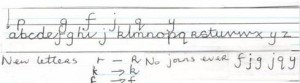 p g f j q y
abcdefghijklmnopqrstuvwxyz
New letters r → r No joins ever f j g j q y
k → k
f → f